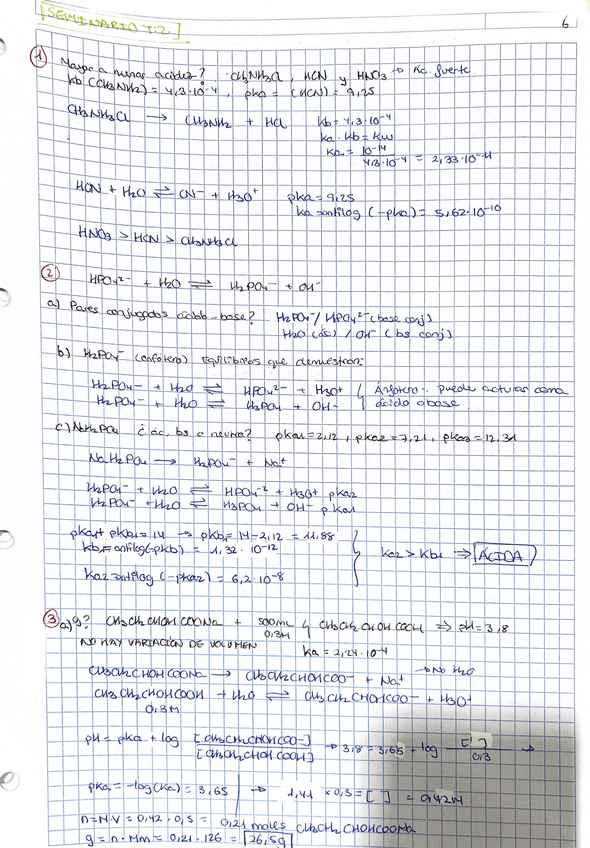 SEMINARIO T.2.
6
① Mayor a menor acidez? CH3NH3Cl, HCN y HNO3 → Ac. fuerte
Kb (CH3NH2) = 4,3·10⁻⁴, pKa = (HCN) = 9,25
CH3NH3Cl → CH3NH2 + HCl
Kb = 4,3·10⁻⁴
Ka · Kb = Kw
Ka = 10⁻¹⁴ / 4,3·10⁻⁴ = 2,33·10⁻¹¹
HCN + H2O ⇌ CN⁻ + H3O⁺
pKa = 9,25
Ka = antilog (-pKa) = 5,62·10⁻¹⁰
HNO3 > HCN > CH3NH3Cl
② HPO4²⁻ + H2O ⇌ H2PO4⁻ + OH⁻
a) Pares conjugados ácido-base? H2PO4⁻/ HPO4²⁻ (base conj)
H2O (ác) / OH⁻ (bs conj)
b) H2PO4⁻ (anfótero) Equilibrios que demuestran:
H2PO4⁻ + H2O ⇌ HPO4²⁻ + H3O⁺ } Anfótero: puede actuar como
H2PO4⁻ + H2O ⇌ H3PO4 + OH⁻ ácido o base
c) NaH2PO4 ¿ác, bs o neutra? pKa1 = 2,12, pKa2 = 7,21, pKa3 = 12,31
NaH2PO4 → H2PO4⁻ + Na⁺
H2PO4⁻ + H2O ⇌ HPO4⁻² + H3O⁺ pKa2
H2PO4⁻ + H2O ⇌ H3PO4 + OH⁻ pKa1
pKa1 + pKb1 = 14 → pKb1 = 14 - 2,12 = 11,88
Kb1 = antilog(-pKb) = 1,32·10⁻¹²
Ka2 > Kb1 ⇒ ÁCIDA
Ka2 = antilog (-pKa2) = 6,2·10⁻⁸
③ a) g? CH3CH2CHOHCOONa + 500mL 0,3M } CH3CH2CHOHCOOH ⇒ pH = 3,8
NO HAY VARIACIÓN DE VOLUMEN
Ka = 2,24·10⁻⁴
CH3CH2CHOHCOONa → CH3CH2CHOHCOO⁻ + Na⁺ → No H2O
CH3CH2CHOHCOOH + H2O ⇌ CH3CH2CHOHCOO⁻ + H3O⁺
0,3M
pH = pKa + log [CH3CH2CHOHCOO⁻] / [CH3CH2CHOHCOOH] → 3,8 = 3,65 + log [ ] / 0,3 →
pKa = -log(Ka) = 3,65 → 1,41 × 0,3 = [ ] = 0,42M
n = M·V = 0,42 · 0,5 = 0,21 moles CH3CH2CHOHCOONa
g = n · Mm = 0,21 · 126 = 26,5g